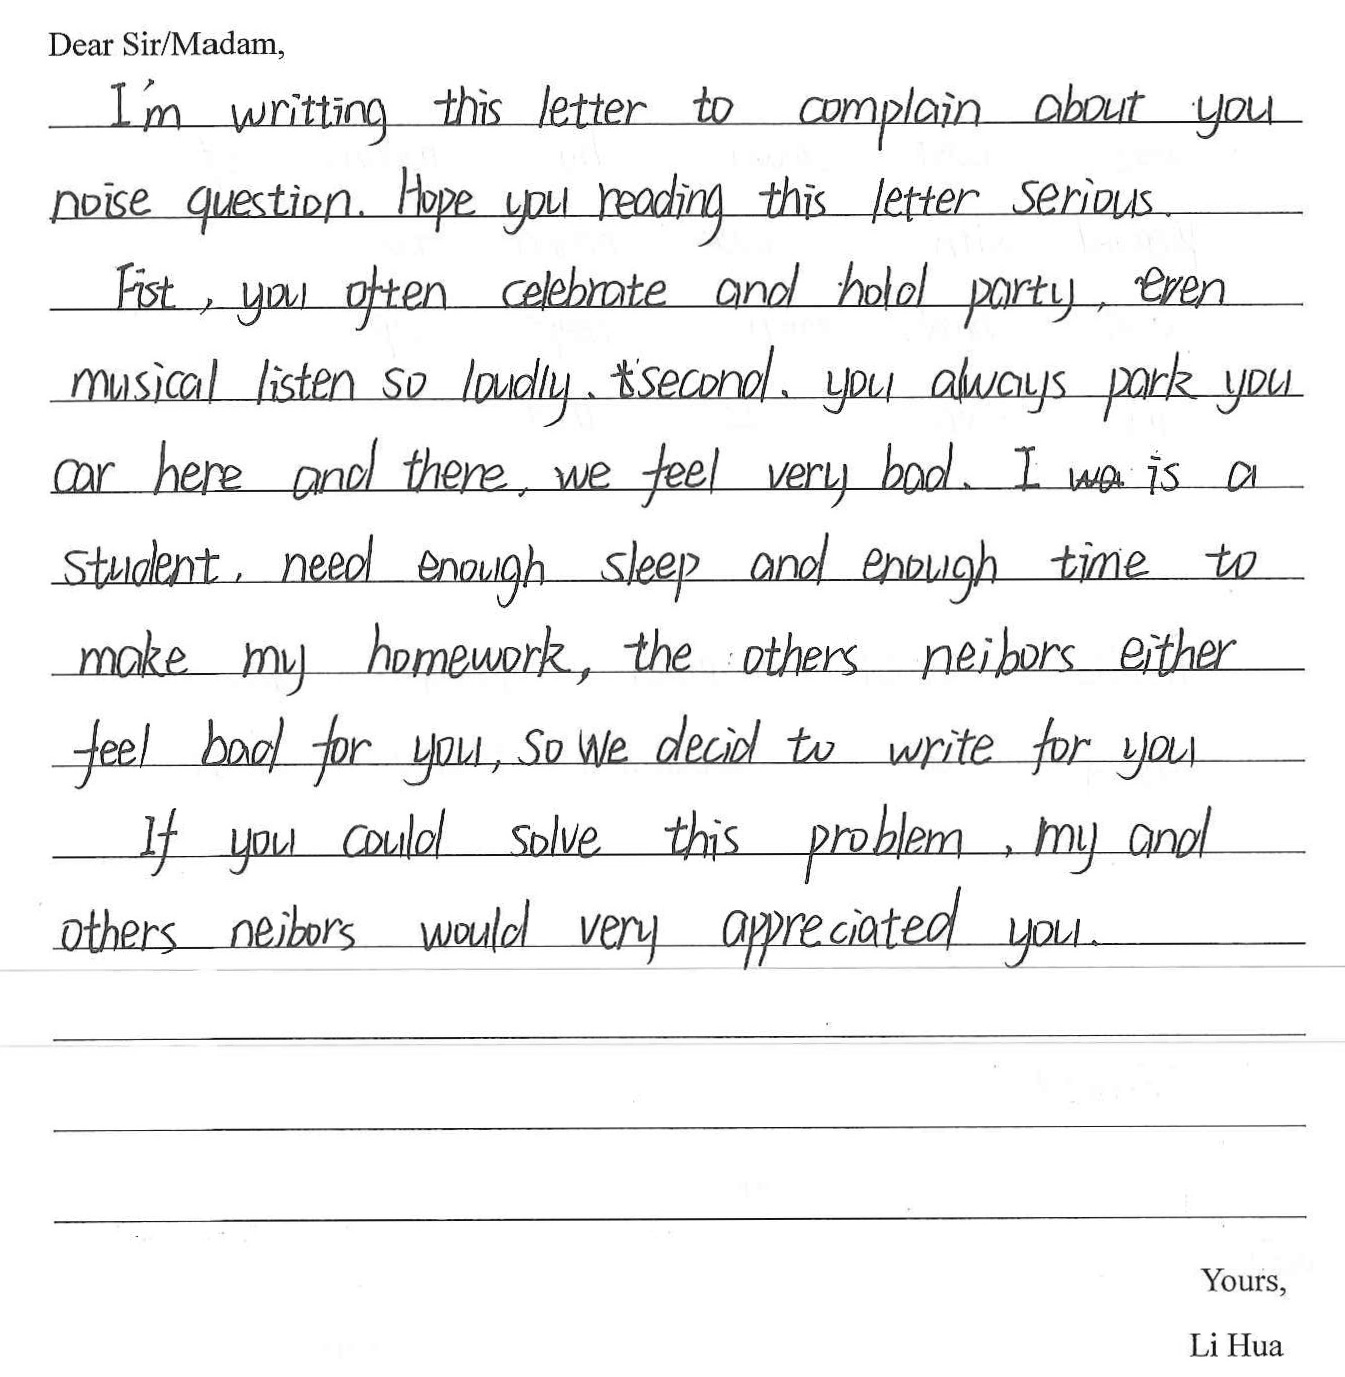 Dear Sir/Madam,
I'm writting this letter to complain about you
noise question. Hope you reading this letter serious.
Fist, you often celebrate and hold party, even
musical listen so loudly. second. you always park you
car here and there, we feel very bad. I is a
student, need enough sleep and enough time to
make my homework, the others neibors either
feel bad for you, so we decid to write for you
If you could solve this problem, my and
others neibors would very appreciated you.
Yours,
Li Hua